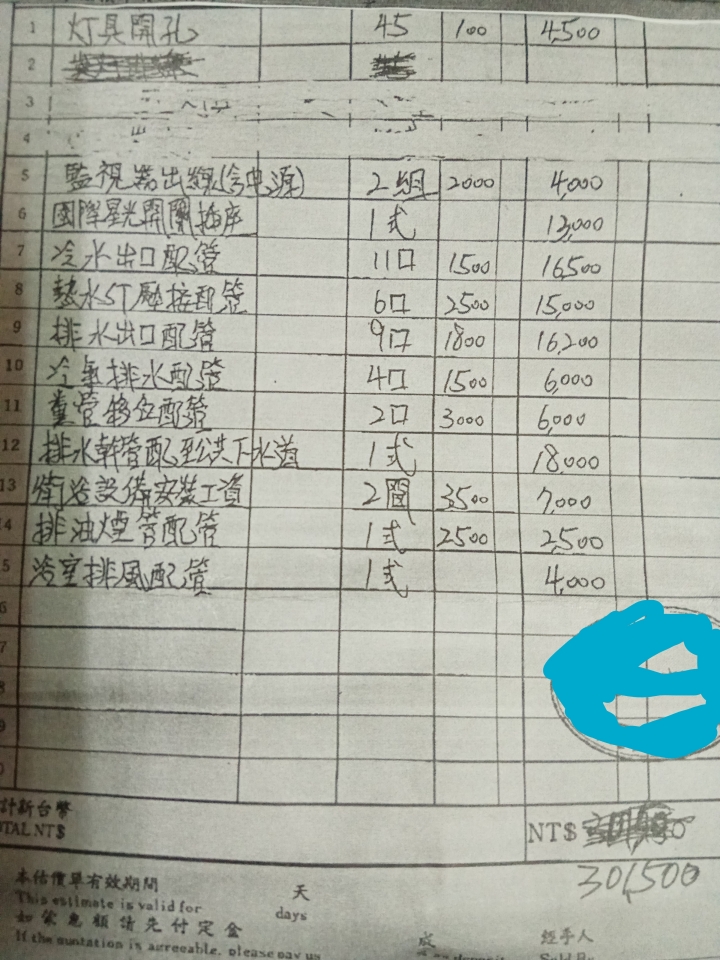 1 灯具開孔 45 100 4,500
2
3
4
5 監視器出線(含电源) 2組 2000 4,000
6 國際星光開關插座 1式 13,000
7 冷水出口配管 11口 1500 16,500
8 熱水ST壓接配管 6口 2500 15,000
9 排水出口配管 9口 1800 16,200
10 冷氣排水配管 4口 1500 6,000
11 糞管移位配管 2口 3000 6,000
12 排水幹管配至公共下水道 1式 18,000
13 衛浴設備安裝工資 2間 3,500 7,000
4 排油煙管配管 1式 2500 2,500
5 浴室排風配管 1式 4,000
6
7
8
9
0
計新台幣
OTAL NT$ NT$
301,500
本估價單有效期間 天
This estimate is valid for days
如蒙惠顧請先付定金
If the quotation is agreeable, please pay us
經手人
Sold By